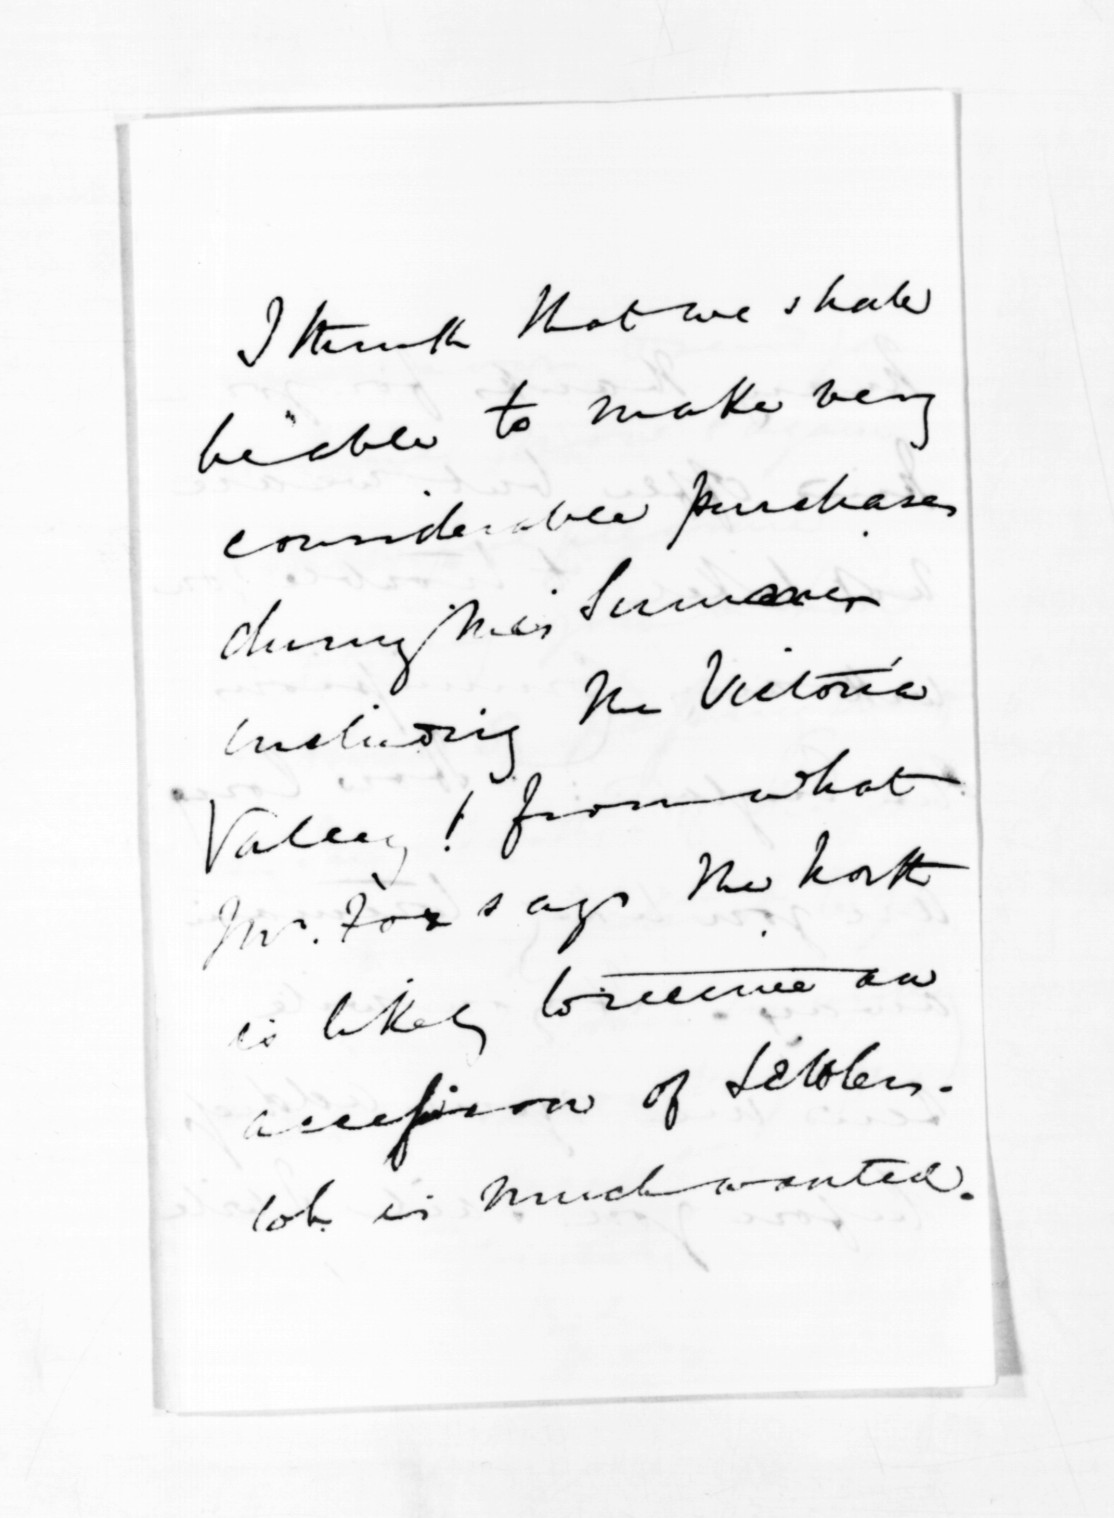 I think that we shall
be able to make very
considerable purchases
during this Summer
including the Victoria
Valley! from what
Mr. Fox says the North
is likely to receive an
accession of Settlers.
is much wanted.